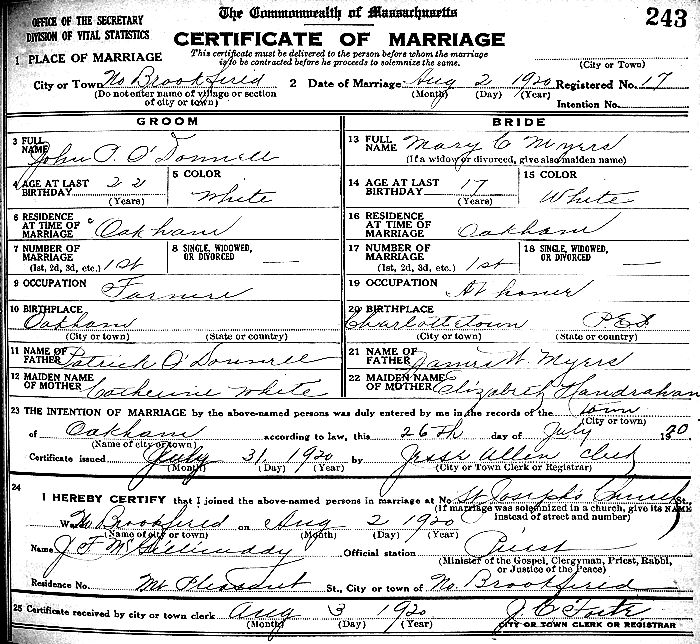 The Commonwealth of Massachusetts
243
OFFICE OF THE SECRETARY
DIVISION OF VITAL STATISTICS
CERTIFICATE OF MARRIAGE
This certificate must be delivered to the person before whom the marriage
is to be contracted before he proceeds to solemnize the same.
1 PLACE OF MARRIAGE
(City or Town)
City or Town No Brookfired 2 Date of Marriage Aug 2 1920 Registered No. 17
(Do not enter name of village or section of city or town) (Month) (Day) (Year) Intention No.
GROOM BRIDE
3 FULL NAME John P. O'Donnell 13 FULL NAME Mary C Myers
(If a widow or divorced, give also maiden name)
4 AGE AT LAST BIRTHDAY 22 (Years) 5 COLOR White 14 AGE AT LAST BIRTHDAY 17 (Years) 15 COLOR White
6 RESIDENCE AT TIME OF MARRIAGE Oakham 16 RESIDENCE AT TIME OF MARRIAGE Oakham
7 NUMBER OF MARRIAGE (1st, 2d, 3d, etc.) 1st 8 SINGLE, WIDOWED, OR DIVORCED — 17 NUMBER OF MARRIAGE (1st, 2d, 3d, etc.) 1st 18 SINGLE, WIDOWED, OR DIVORCED —
9 OCCUPATION 19 OCCUPATION At
10 BIRTHPLACE Oakham 20 BIRTHPLACE Charlottetown
(City or town) (State or country) (City or town) (State or country)
11 NAME OF FATHER Patrick O'Donnell 21 NAME OF FATHER James W. Myers
12 MAIDEN NAME OF MOTHER Catherine White 22 MAIDEN NAME OF MOTHER Elizabeth Handrahan
23 THE INTENTION OF MARRIAGE by the above-named persons was duly entered by me in the records of the town
(City or town)
of Oakham according to law, this 26th day of July 1920.
(Name of city or town)
Certificate issued July 31 1920 by Jesse Allen clerk
(Month) (Day) (Year) (City or Town Clerk or Registrar)
24 I HEREBY CERTIFY that I joined the above-named persons in marriage at No. St Joseph's Church St.,
(If marriage was solemnized in a church, give its NAME instead of street and number)
No Brookfired on Aug 2 1920
(Name of city or town) (Month) (Day) (Year)
Name J F Official station Priest
(Minister of the Gospel, Clergyman, Priest, Rabbi, or Justice of the Peace)
Residence No. Mt Pleasant St., City or town of No. Brookfired
25 Certificate received by city or town clerk Aug 3 1920
(Month) (Day) (Year) CITY OR TOWN CLERK OR REGISTRAR